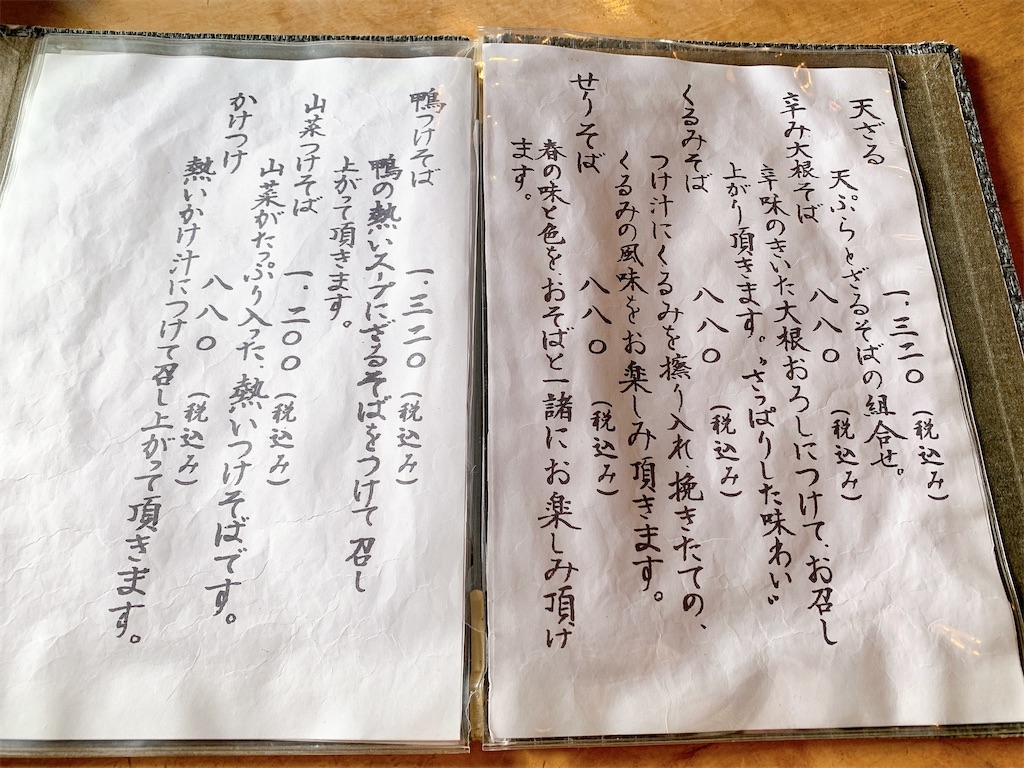 天ざる 一、三二〇（税込み）
天ぷらとざるそばの組合せ。
辛み大根そば 八八〇（税込み）
辛味のきいた大根おろしにつけて、お召し
上がり頂きます。〝さっぱりした味わい〟
くるみそば 八八〇（税込み）
つけ汁にくるみを擦り入れ、挽きたての、
くるみの風味をお楽しみ頂きます。
せりそば 八八〇（税込み）
春の味と色を、おそばと一諸にお楽しみ頂け
ます。
鴨つけそば 一、三二〇（税込み）
鴨の熱いスープにざるそばをつけて召し
上がって頂きます。
山菜つけそば 一、二〇〇（税込み）
山菜がたっぷり入った、熱いつけそばです。
かけつけ 八八〇（税込み）
熱いかけ汁につけて召し上がって頂きます。